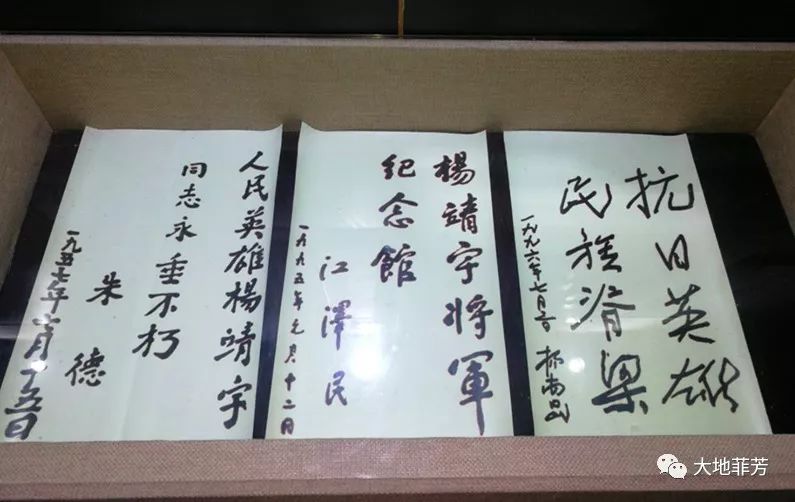 抗日英雄
民族脊梁
一九九六年七月
杨尚昆
楊靖宇将軍
纪念館
江澤民
一九九五年元月十二日
人民英雄楊靖宇
同志永垂不朽
朱德
一九五七年二月十五日
大地菲芳